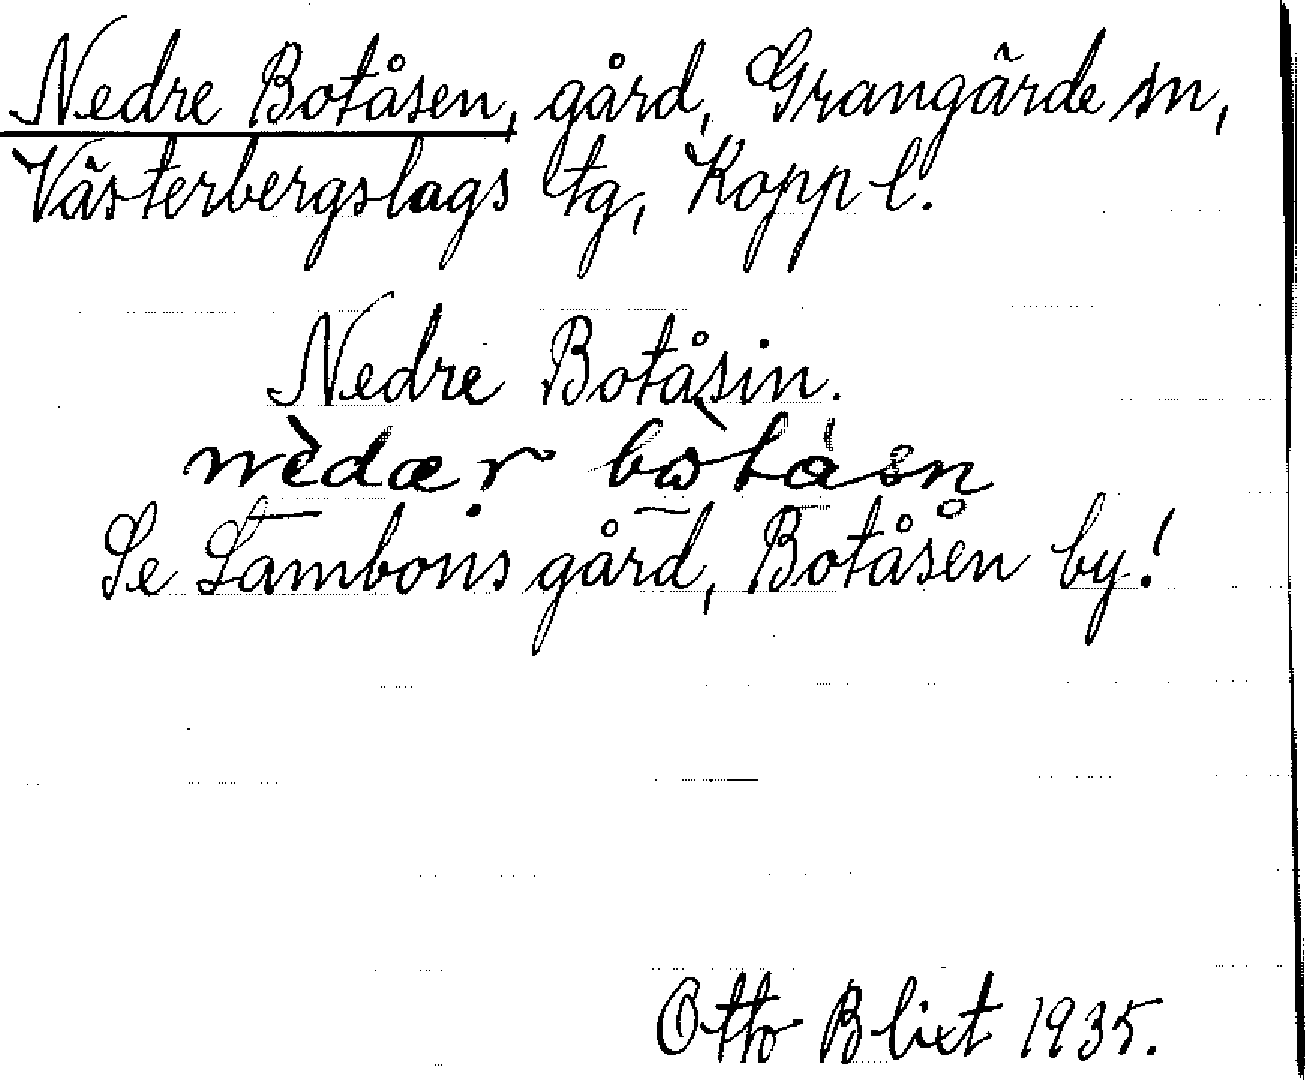 Nedre Botåsen, gård, Grangärde sn,
Västerbergslags tg, Kopp l.
Nedre Botåsin.
Se Lambons gård, Botåsen by!
Otto Blixt 1935.